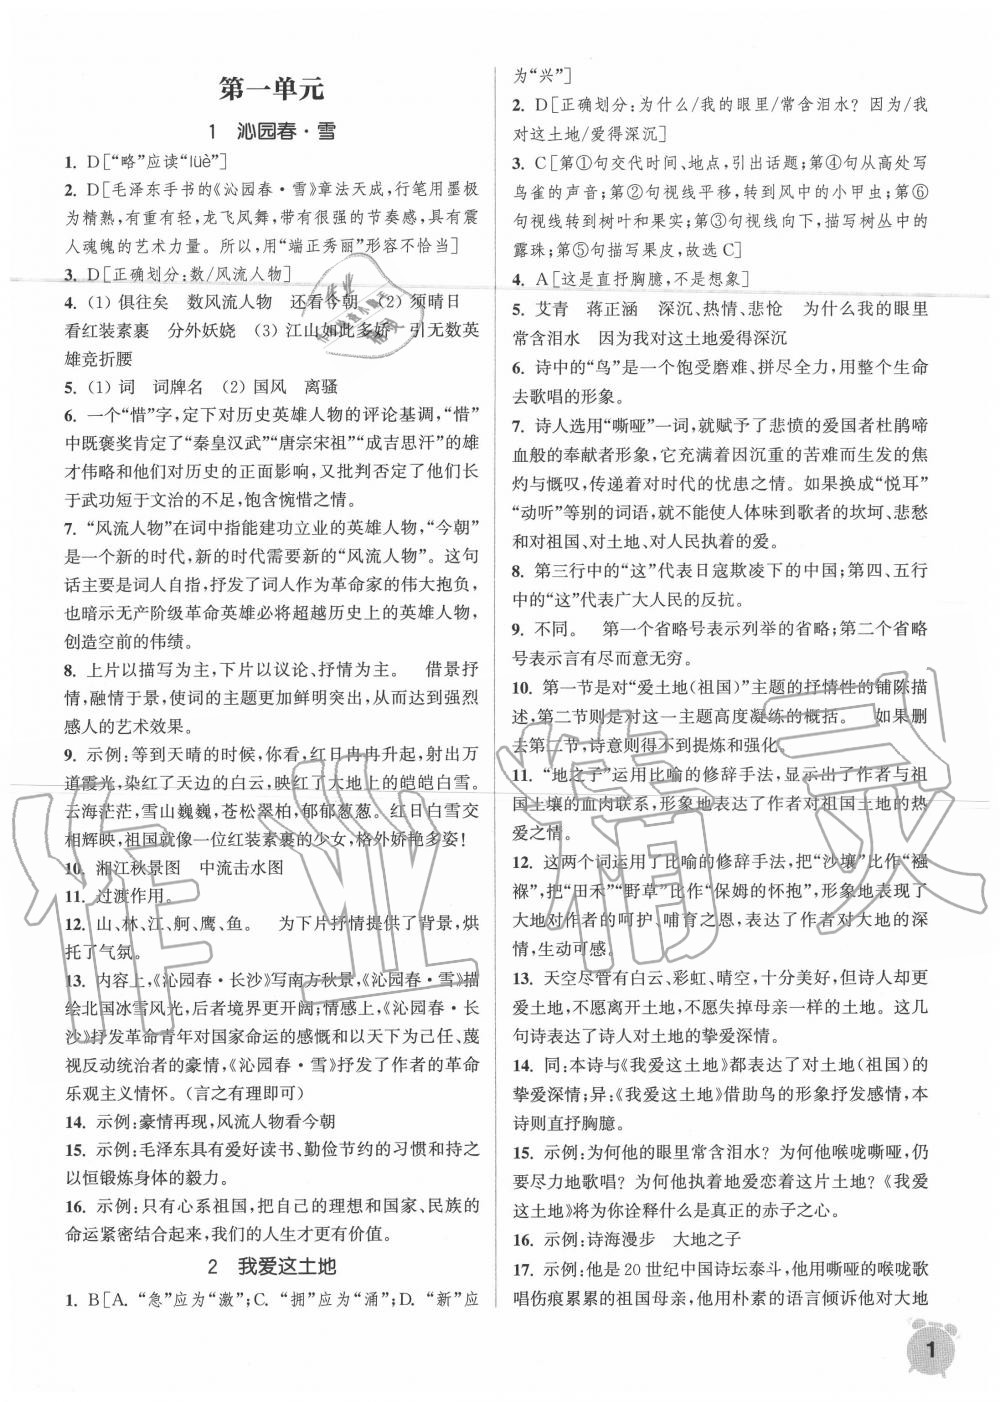 第一单元
1 沁园春·雪
1. D[“略”应读“lüè”]
2. D[毛泽东手书的《沁园春·雪》章法天成,行笔用墨极
为精熟,有重有轻,龙飞凤舞,带有很强的节奏感,具有震
人魂魄的艺术力量。所以,用“端正秀丽”形容不恰当]
3. D[正确划分:数/风流人物]
4. (1) 俱往矣 数风流人物 还看今朝 (2) 须晴日
看红装素裹 分外妖娆 (3) 江山如此多娇 引无数英
雄竞折腰
5. (1) 词 词牌名 (2) 国风 离骚
6. 一个“惜”字,定下对历史英雄人物的评论基调,“惜”
中既褒奖肯定了“秦皇汉武”“唐宗宋祖”“成吉思汗”的雄
才伟略和他们对历史的正面影响,又批判否定了他们长
于武功短于文治的不足,饱含惋惜之情。
7. “风流人物”在词中指能建功立业的英雄人物,“今朝”
是一个新的时代,新的时代需要新的“风流人物”。这句
话主要是词人自指,抒发了词人作为革命家的伟大抱负,
也暗示无产阶级革命英雄必将超越历史上的英雄人物,
创造空前的伟绩。
8. 上片以描写为主,下片以议论、抒情为主。 借景抒
情,融情于景,使词的主题更加鲜明突出,从而达到强烈
感人的艺术效果。
9. 示例:等到天晴的时候,你看,红日冉冉升起,射出万
道霞光,染红了天边的白云,映红了大地上的皑皑白雪。
云海茫茫,雪山巍巍,苍松翠柏,郁郁葱葱。红日白雪交
相辉映,祖国就像一位红装素裹的少女,格外娇艳多姿!
10. 湘江秋景图 中流击水图
11. 过渡作用。
12. 山、林、江、舸、鹰、鱼。 为下片抒情提供了背景,烘
托了气氛。
13. 内容上,《沁园春·长沙》写南方秋景,《沁园春·雪》描
绘北国冰雪风光,后者境界更开阔;情感上,《沁园春·长
沙》抒发革命青年对国家命运的感慨和以天下为己任、蔑
视反动统治者的豪情,《沁园春·雪》抒发了作者的革命
乐观主义情怀。(言之有理即可)
14. 示例:豪情再现,风流人物看今朝
15. 示例:毛泽东具有爱好读书、勤俭节约的习惯和持之
以恒锻炼身体的毅力。
16. 示例:只有心系祖国,把自己的理想和国家、民族的
命运紧密结合起来,我们的人生才更有价值。
2 我爱这土地
1. B[A. “急”应为“激”;C. “拥”应为“涌”;D. “新”应
为“兴”]
2. D[正确划分:为什么/我的眼里/常含泪水?因为/我
对这土地/爱得深沉]
3. C[第①句交代时间、地点,引出话题;第④句从高处写
鸟雀的声音;第②句视线平移,转到风中的小甲虫;第⑥
句视线转到树叶和果实;第③句视线向下,描写树丛中的
露珠;第⑤句描写果皮,故选 C]
4. A[这是直抒胸臆,不是想象]
5. 艾青 蒋正涵 深沉、热情、悲怆 为什么我的眼里
常含泪水 因为我对这土地爱得深沉
6. 诗中的“鸟”是一个饱受磨难、拼尽全力,用整个生命
去歌唱的形象。
7. 诗人选用“嘶哑”一词,就赋予了悲愤的爱国者杜鹃啼
血般的奉献者形象,它充满着因沉重的苦难而生发的焦
灼与慨叹,传递着对时代的忧患之情。如果换成“悦耳”
“动听”等别的词语,就不能使人体味到歌者的坎坷、悲愁
和对祖国、对土地、对人民执着的爱。
8. 第三行中的“这”代表日寇欺凌下的中国;第四、五行
中的“这”代表广大人民的反抗。
9. 不同。 第一个省略号表示列举的省略;第二个省略
号表示言有尽而意无穷。
10. 第一节是对“爱土地(祖国)”主题的抒情性的铺陈描
述,第二节则是对这一主题高度凝练的概括。 如果删
去第二节,诗意则得不到提炼和强化。
11. “地之子”运用比喻的修辞手法,显示出了作者与祖
国土壤的血肉联系,形象地表达了作者对祖国土地的热
爱之情。
12. 这两个词运用了比喻的修辞手法,把“沙壤”比作“襁
褓”,把“田禾”“野草”比作“保姆的怀抱”,形象地表现了
大地对作者的呵护、哺育之恩,表达了作者对大地的深
情,生动可感。
13. 天空尽管有白云、彩虹、晴空,十分美好,但诗人却更
爱土地,不愿离开土地,不愿失掉母亲一样的土地。这几
句诗表达了诗人对土地的挚爱深情。
14. 同:本诗与《我爱这土地》都表达了对土地(祖国)的
挚爱深情;异:《我爱这土地》借助鸟的形象抒发感情,本
诗则直抒胸臆。
15. 示例:为何他的眼里常含泪水?为何他喉咙嘶哑,仍
要尽力地歌唱?为何他执着地爱恋着这片土地?《我爱
这土地》将为你诠释什么是真正的赤子之心。
16. 示例:诗海漫步 大地之子
17. 示例:他是 20 世纪中国诗坛泰斗,他用嘶哑的喉咙歌
唱伤痕累累的祖国母亲,他用朴素的语言倾诉他对大地
1
作业精灵